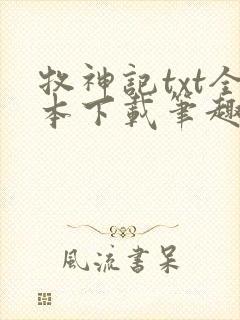 牧神記txt全
本下載筆趣
風流書呆